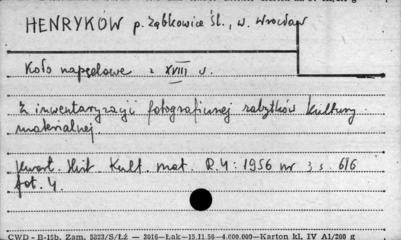 HENRYKÓW p. Ząbkowice Śl., w. Wrocław
Koło napędowe z XVIII w.
Z inwentaryzacji fotograficznej zabytków kultury
materialnej.
Kwart. Hist. Kult. mat. R. 4: 1956 nr 3 s. 616
fot. 4.
CWD - B-15b. Zam. 5323/S/Łż — 3016—Łak—15.11.56—4.000.000—Karton kl. IV A1/200 g